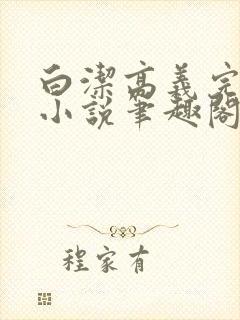 白潔高義完
小說筆趣閣
程家有